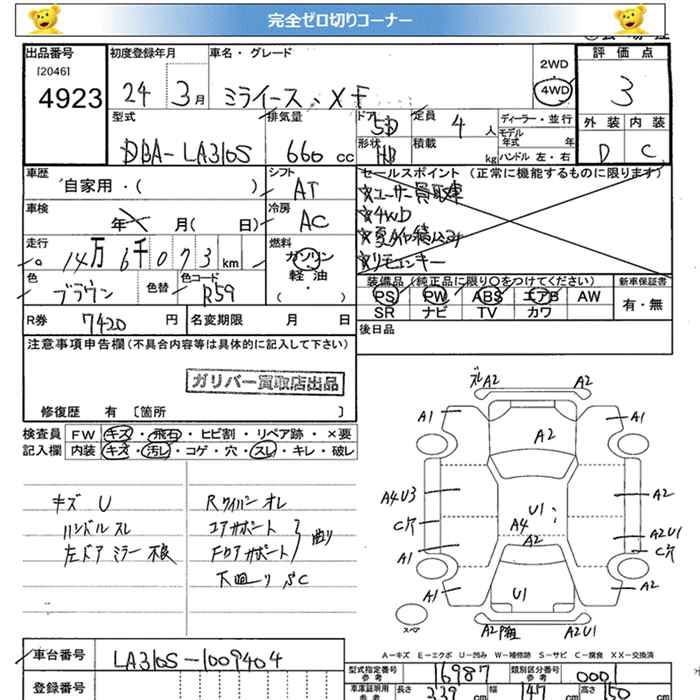 完全ゼロ切りコーナー
出品番号 初度登録年月 車名・グレード 評価点
[2046]
4923 24 3月 ミライース、XF 2WD 4WD 3
型式 排気量 ドア 定員 ディーラー・並行 外装 内装
DBA-LA310S 660cc 5D 4人 モデル年式 年 D C
形状 HB 積載 kg ハンドル 左・右
車歴 自家用・( ) シフト AT セールスポイント (正常に機能するものに限ります)
☆ユーザー買取車
車検 年 月( 日) 冷房 AC ☆4WD
走行 14万6千073km 燃料 ガソリン 軽油 ( ・ )
☆リモコンキー
色 ブラウン 色替 色コード R59 装備品(純正品に限り○をつけてください) 新車保証書
PS PW ABS エアB AW 有・無
SR ナビ TV カワ
R券 7420円 名変期限 月 日 後日品
注意事項申告欄(不具合内容等は具体的に記入して下さい)
ガリバー買取店出品
修復歴 有 [箇所 ]
検査員 FW キズ・飛石・ヒビ割・リペア跡・×要
記入欄 内装 キズ・汚レ・コゲ・穴・スレ・キレ・破レ
キズ U Rワイパー オレ
ハンドル スレ コアサポート
左ドア ミラー 不良 Fクロアサポート 曲り
下回り SC
ズレ A2 A2
A1 A1
A2
A4 U3 A2
U1
C穴 A4 A2U1
A2 C穴
A1 A2
A1 U1
スペア A2 A2U1
A-キズ E-エクボ U-凹み W-補修跡 S-サビ C-腐食 XX-交換済
車台番号 LA310S-1009404 型式指定番号 参考 16987 類別区分番号 参考 0001
登録番号 車庫証明用 参考 長さ 339cm 幅 147cm 高さ 150cm